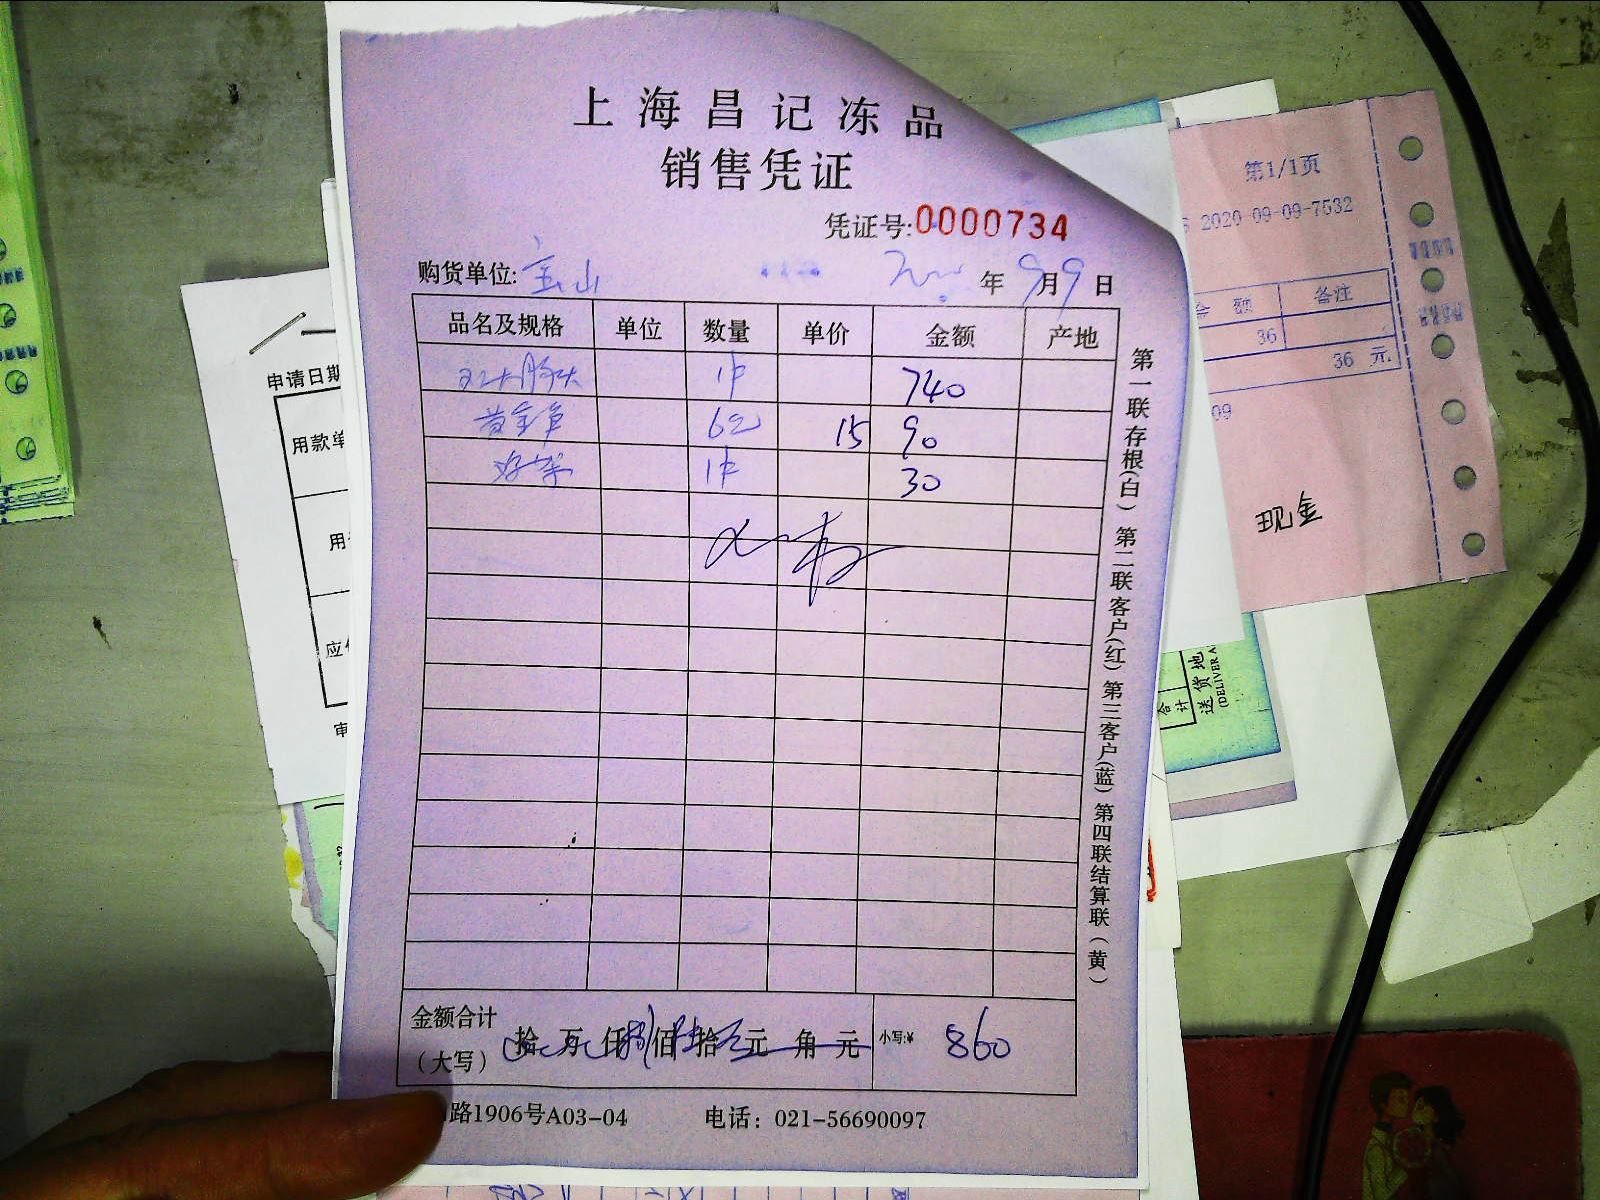 上海昌记冻品
销售凭证
凭证号:0000734
购货单位:宝山 年9月9日
品名及规格 单位 数量 单价 金额 产地
1件 740
黄金笋 6包 15 90
1件 30
金额合计
(大写) 拾 万 仟 捌佰 陆拾 元 角 元 小写:¥ 860
路1906号A03-04 电话: 021-56690097
第一联存根(白) 第二联客户(红) 第三客户(蓝) 第四联结算联(黄)
第1/1页
2020-09-09-7532
额 备注
36
36 元
09
现金
申请日期
用款单
用
应
审
合计
送货地
(DELIVER A